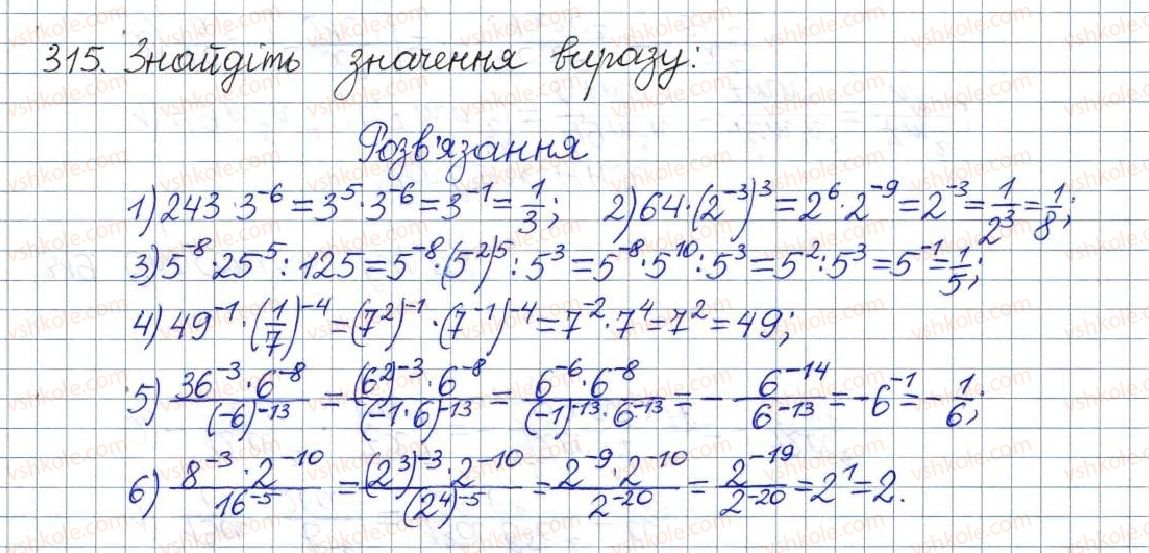 315. Знайдіть значення виразу:
Розв'язання
1) 243 · 3⁻⁶ = 3⁵ · 3⁻⁶ = 3⁻¹ = 1/3; 2) 64 · (2⁻³)³ = 2⁶ · 2⁻⁹ = 2⁻³ = 1/2³ = 1/8;
3) 5⁻⁸ · 25⁵ : 125 = 5⁻⁸ · (5²)⁵ : 5³ = 5⁻⁸ · 5¹⁰ : 5³ = 5² : 5³ = 5⁻¹ = 1/5;
4) 49⁻¹ · (1/7)⁻⁴ = (7²)⁻¹ · (7⁻¹)⁻⁴ = 7⁻² · 7⁴ = 7² = 49;
5) (36⁻³ · 6⁻⁸)/((-6)⁻¹³) = ((6²)⁻³ · 6⁻⁸)/((-1 · 6)⁻¹³) = (6⁻⁶ · 6⁻⁸)/((-1)⁻¹³ · 6⁻¹³) = - 6⁻¹⁴/6⁻¹³ = -6⁻¹ = -1/6;
6) (8⁻³ · 2⁻¹⁰)/(16⁻⁵) = ((2³)⁻³ · 2⁻¹⁰)/((2⁴)⁻⁵) = (2⁻⁹ · 2⁻¹⁰)/(2⁻²⁰) = 2⁻¹⁹/2⁻²⁰ = 2¹ = 2.